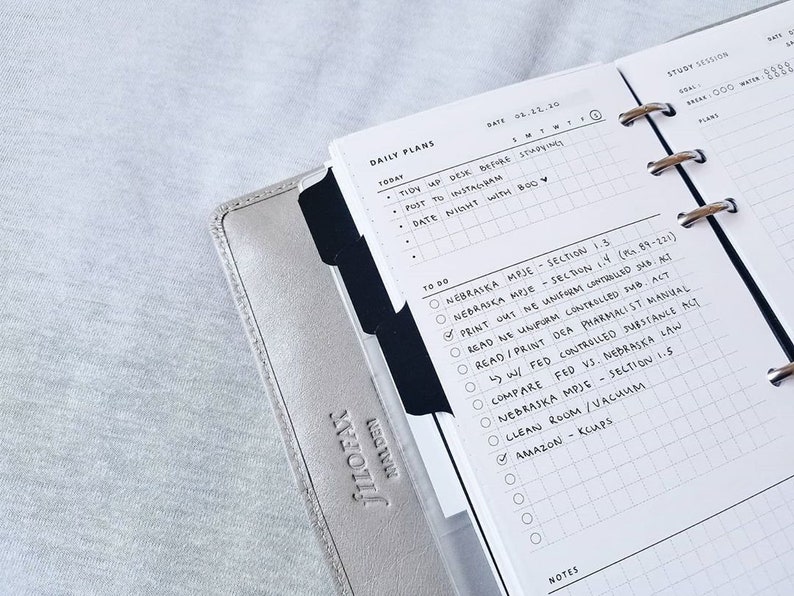 DAILY PLANS
DATE 02.22.20
S M T W T F S
TODAY
• TIDY UP DESK BEFORE STUDYING
• POST TO INSTAGRAM
• DATE NIGHT WITH BOO ♥
TO DO
NEBRASKA MPJE - SECTION 1.3
NEBRASKA MPJE - SECTION 1.4 (PG. 89-221)
PRINT OUT NE UNIFORM CONTROLLED SUB. ACT
READ NE UNIFORM CONTROLLED SUB. ACT
READ/PRINT DEA PHARMACIST MANUAL
↳ W/ FED CONTROLLED SUBSTANCE ACT
COMPARE FED VS. NEBRASKA LAW
NEBRASKA MPJE - SECTION 1.5
CLEAN ROOM / VACUUM
AMAZON - KCUPS
NOTES
STUDY SESSION
DATE
GOAL:
BREAK: WATER:
PLANS
FILOFAX
MALDEN